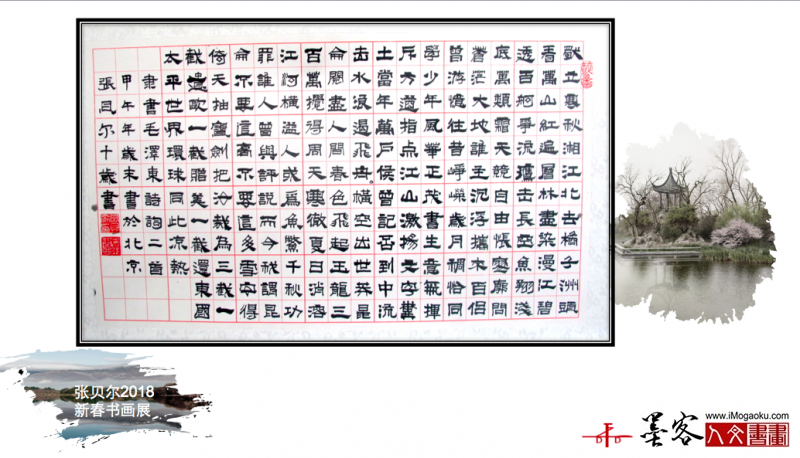 獨立寒秋湘江北去橘子洲頭
看萬山紅遍層林盡染漫江碧
透百舸爭流鷹擊長空魚翔淺
底萬類霜天競自由悵寥廓問
蒼茫大地誰主沉浮攜來百侶
曾游憶往昔崢嶸歲月稠恰同
學少年風華正茂書生意氣揮
斥方遒指点江山激揚文字糞
土當年萬戶侯曾記否到中流
击水浪遏飛舟橫空出世莽昆
侖閱盡人間春色飛起玉龍三
百萬攪得周天寒徹夏日消溶
江河橫溢人或為魚鱉千秋功
罪誰人曾與評說而今我謂昆
侖不要這高不要這多雪安得
倚天抽寶劍把汝裁為三截一
截遺歐一截贈美一截還東國
太平世界環球同此涼熱
隸書毛澤東詩詞二首
甲午年歲末書於北京
張貝尔十歲書
张贝尔2018
新春书画展
墨客
www.iMogaoku.com
人文書畫